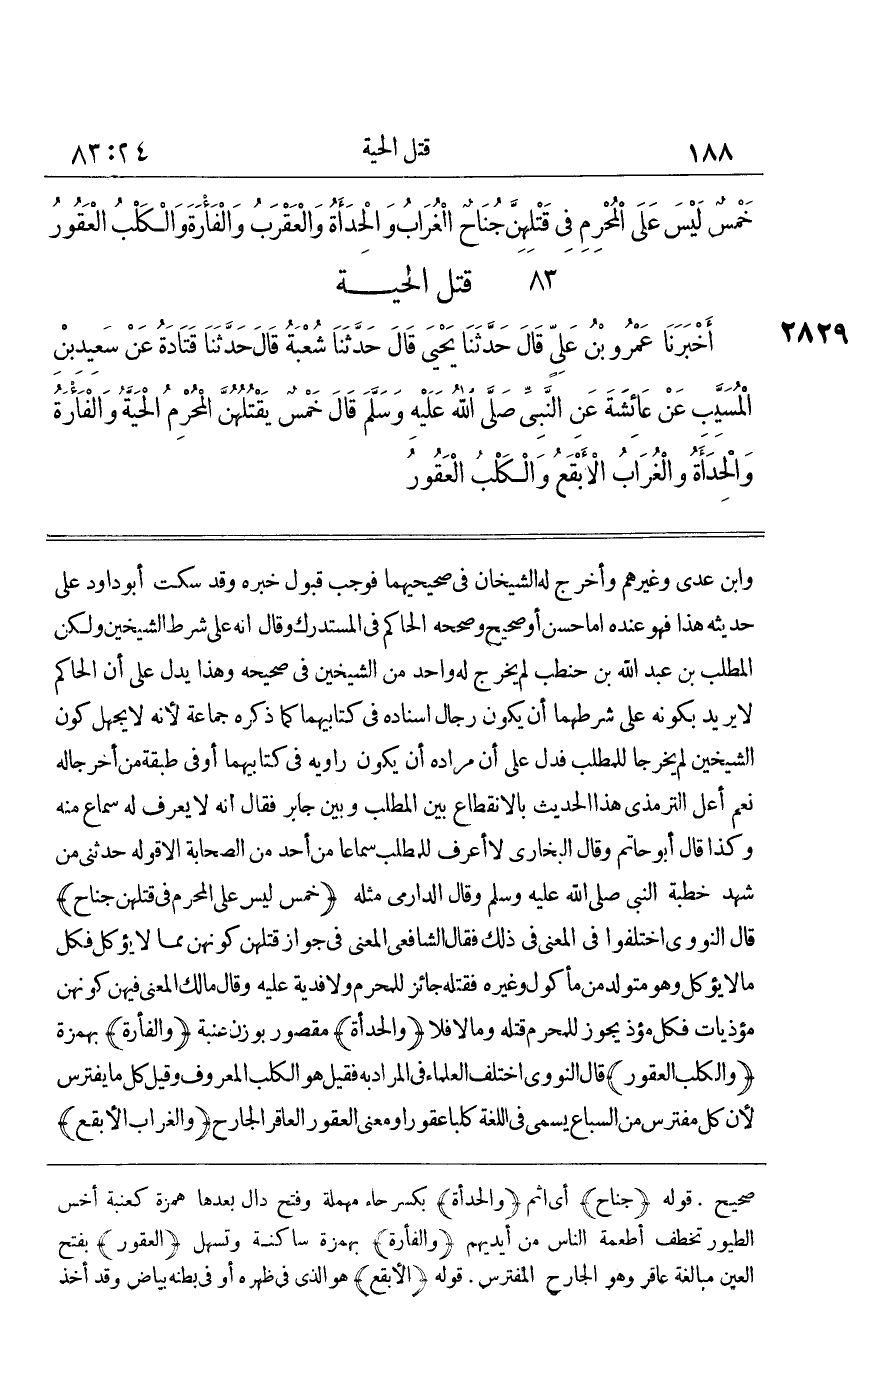 ١٨٨ قتل الحية ٢٤ : ٨٣
خَمْسٌ لَيْسَ عَلَى الْمُحْرِمِ فِي قَتْلِهِنَّ جُنَاحٌ الْغُرَابُ وَالْحِدَأَةُ وَالْعَقْرَبُ وَالْفَأْرَةُ وَالْكَلْبُ الْعَقُورُ
٨٣ قتل الحية
٢٨٢٩ أَخْبَرَنَا عَمْرُو بْنُ عَلِيٍّ قَالَ حَدَّثَنَا يَحْيَى قَالَ حَدَّثَنَا شُعْبَةُ قَالَ حَدَّثَنَا قَتَادَةُ عَنْ سَعِيدِ بْنِ
الْمُسَيَّبِ عَنْ عَائِشَةَ عَنِ النَّبِيِّ صَلَّى اللهُ عَلَيْهِ وَسَلَّمَ قَالَ خَمْسٌ يَقْتُلُهُنَّ الْمُحْرِمُ الْحَيَّةُ وَالْفَأْرَةُ
وَالْحِدَأَةُ وَالْغُرَابُ الْأَبْقَعُ وَالْكَلْبُ الْعَقُورُ
وابن عدى وغيرهم وأخرج له الشيخان فى صحيحيهما فوجب قبول خبره وقد سكت أبو داود على
حديثه هذا فهو عنده اما حسن أو صحيح وصححه الحاكم فى المستدرك وقال انه على شرط الشيخين ولكن
المطلب بن عبد الله بن حنطب لم يخرج له واحد من الشيخين فى صحيحه وهذا يدل على أن الحاكم
لايريد بكونه على شرطهما أن يكون رجال اسناده فى كتابيهما كما ذكره جماعة لأنه لايجهل كون
الشيخين لم يخرجا للمطلب فدل على أن مراده أن يكون راويه فى كتابيهما أو فى طبقة من أخرجا له
نعم أعل الترمذى هذا الحديث بالانقطاع بين المطلب وبين جابر فقال انه لا يعرف له سماع منه
وكذا قال أبو حاتم وقال البخارى لا أعرف للمطلب سماعا من أحد من الصحابة الا قوله حدثنى من
شهد خطبة النبى صلى الله عليه وسلم وقال الدارمى مثله ﴿خمس ليس على المحرم فى قتلهن جناح﴾
قال النووى اختلفوا فى المعنى فى ذلك فقال الشافعى المعنى فى جواز قتلهن كونهن مما لا يؤكل فكل
مالا يؤكل وهو متولد من مأكول وغيره فقتله جائز للمحرم ولا فدية عليه وقال مالك المعنى فيهن كونهن
مؤذيات فكل مؤذ يجوز للمحرم قتله ومالا فلا ﴿والحدأة﴾ مقصور بوزن عنبة ﴿والفأرة﴾ بهمزة
﴿والكلب العقور﴾ قال النووى اختلف العلماء فى المراد به فقيل هو الكلب المعروف وقيل كل ما يفترس
لأن كل مفترس من السباع يسمى فى اللغة كلبا عقورا ومعنى العقور العاقر الجارح ﴿والغراب الأبقع﴾
صحيح . قوله ﴿جناح﴾ أى اثم ﴿والحدأة﴾ بكسر حاء مهملة وفتح دال بعدها همزة كعنبة أخس
الطيور تخطف أطعمة الناس من أيديهم ﴿والفأرة﴾ بهمزة ساكنة وتسهل ﴿العقور﴾ بفتح
العين مبالغة عاقر وهو الجارح المفترس . قوله ﴿الأبقع﴾ هو الذى فى ظهره أو فى بطنه بياض وقد أخذ